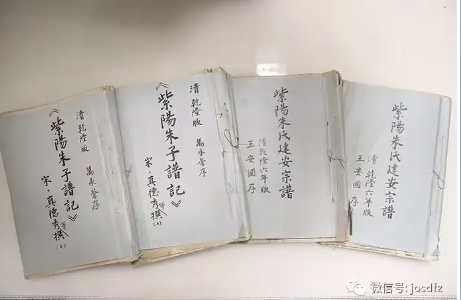 清乾隆版 萬承蒼序
《紫陽朱子譜記》
宋·真德秀撰
清乾隆版 萬承蒼序
《紫陽朱子譜記》
宋·真德秀撰
紫陽朱氏建安宗譜
清乾隆六年版
王安國序
紫陽朱氏建安宗譜
清乾隆六年版
王安國序
微信号: josdfz